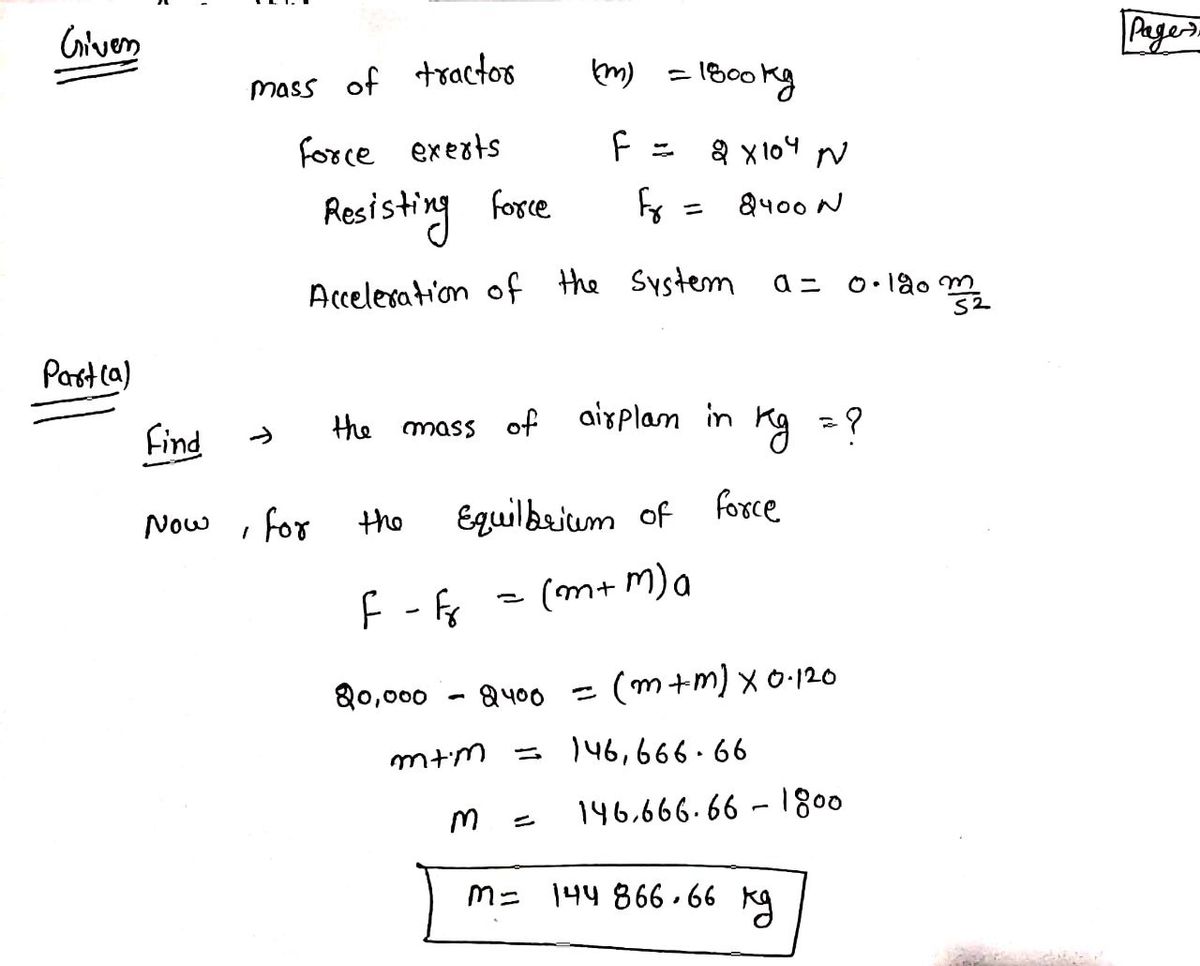 Given
Page→
mass of tractor (m) = 1800 kg
force exerts F = 2 × 10⁴ N
Resisting force Fr = 2400 N
Acceleration of the System a = 0.120 m/s2
Part (a)
Find → the mass of airplam in kg = ?
Now, for the Equilbrium of force
F - Fr = (m + M) a
20,000 - 2400 = (m + m) × 0.120
m + m = 146,666.66
m = 146,666.66 - 1800
m = 144 866.66 kg